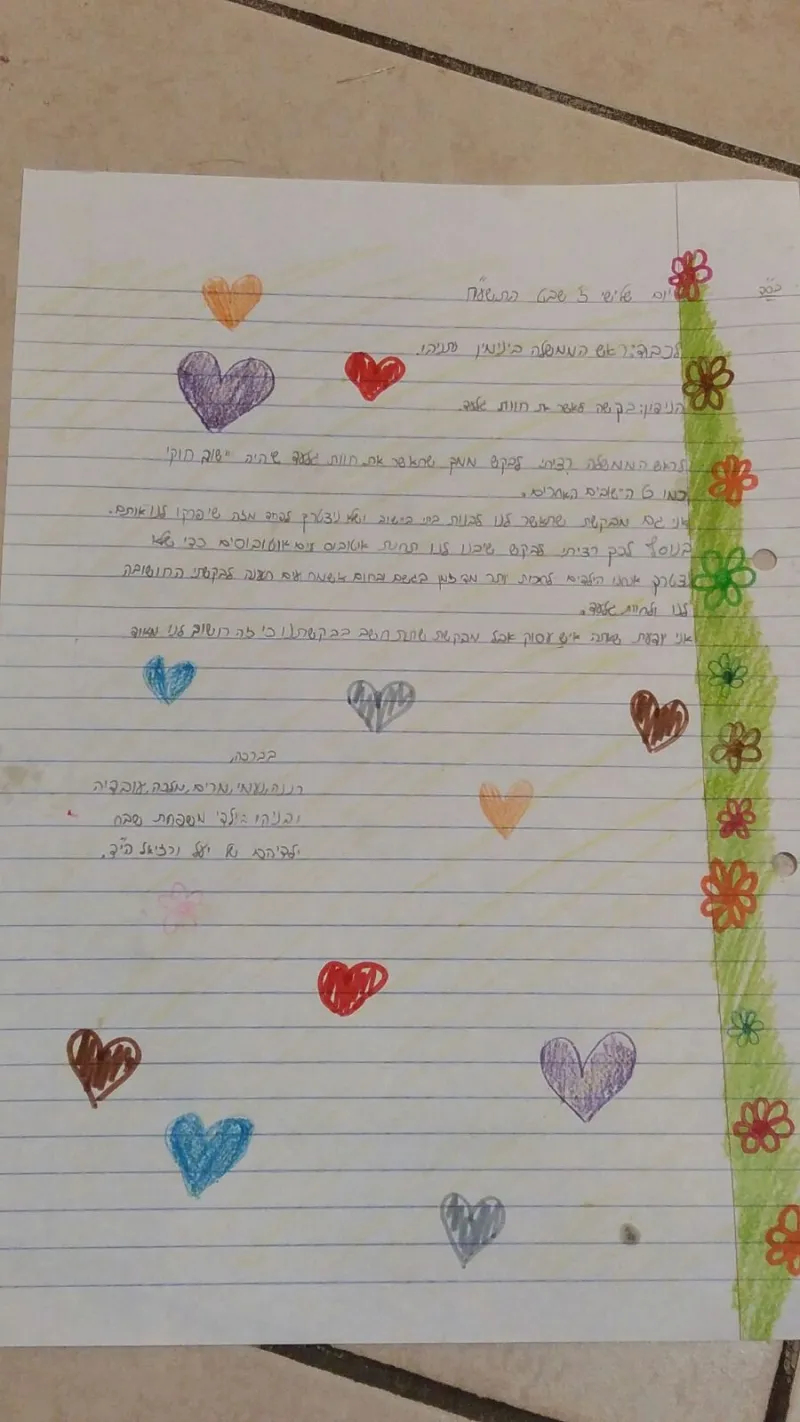 בס"ד
יום שלישי ז' שבט התשע"ח
לכבוד: ראש הממשלה בינימין נתניהו.
הנידון: בקשה לאשר את חוות גלעד.
לראש הממשלה רציתי לבקש ממך שתאשר את חוות גלעד שיהיה יישוב חוקי
כמו כל הישובים האחרים.
אני גם מבקשת שתאשר לנו לבנות בתי בישוב ושלא נצטרך לפחד מזה שיפרקו לנו אותם.
בנוסף לכך רציתי לבקש שיבנו לנו תחנת אוטובוס עם אוטובוסים כדי שלא
נצטרך אנחנו הילדים לחכות יותר מדי זמן בגשם ובחום אשמח עם תענה לבקשתי החשובה
לנו ולחוות גלעד.
אני יודעת שאתה איש עסוק אבל מבקשת שתתחשב בבקשתנו כי זה חשוב לנו מאוד
בברכה,
רננה, נעמי, מרים, מלכה, עובדיה
ובניהו ילדי משפחת שבח
ילדיהם של יעל ורזיאל הי"ד.